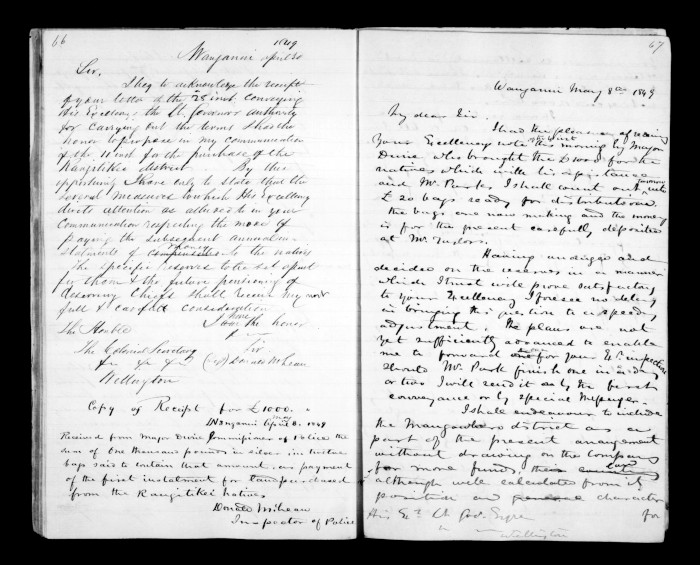 66
1849
Wanganui April 30
Sir,
I beg to acknowledge the receipt
of your letter of the 25 inst. conveying
His Excellency the Lt. Governor authority
for carrying out the terms I had the
honor to propose in my communication
of the 11 inst for the purchase of the
Rangitikei district By this
opportunity I have only to state that the
several measures to which His Excellency
directs attention as alluded to in your
Communication respecting the mode of
paying the subsequent annual in-
stalments of money to the natives
The specific reserves to be set apart
for them & the future pensioning of
deserving Chiefs shall receive my most
full & careful consideration
I have the honor
The Honble
The Colonial Secretary Sir
&c &c &c (sd) Donald McLean
Wellington
Copy of Receipt for £1000.
Wanganui May 8. 1849
Received from Major Durie Commissioner of Police the
sum of One thousand pounds in silver in twelve
bags said to contain that amount, as payment
of the first instalment for land purchased
from the Rangitikei natives
Donald McLean
Inspector of Police
67
Wanganui May 8th 1849
My dear Sir.
I had the pleasure of receiving
your Excellencys note this morning by Major
Durie who brought the £1000 for the
natives which with his assistance
and Mr. Parks I shall count out tomorrow into
£20 bags ready for distribution.
the bags are now making and the money
is for the present carefully deposited
at Mr. Tudors.
Having and
decided on the reserves in a manner
which I trust will prove satisfactory
to your Excellency I foresee no delay
in bringing this question to a speedy
adjustment, the plans are not
yet sufficiently advanced to enable
me to forward one for your Ey. inspection
should Mr. Park finish one in a day
or two I will send it by the first
conveyance or by special Messenger.
I shall endeavour to include
the district as a
part of the present arrangement
without drawing on the Company
for more funds,
although well calculated from its
position and character
His Ey. Lt. Gov. Eyre for
Wellington